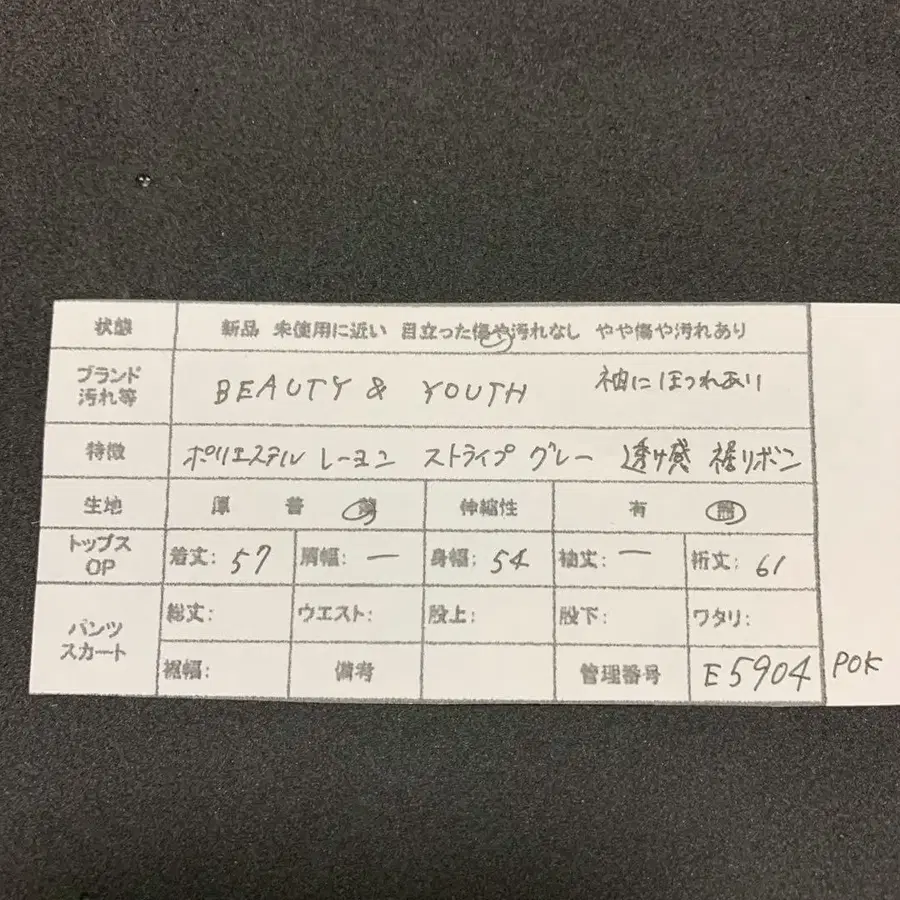 状態 新品 未使用に近い 目立った傷や汚れなし やや傷や汚れあり
ブランド 汚れ等 BEAUTY & YOUTH 袖にほつれあり
特徴 ポリエステル レーヨン ストライプ グレー 透け感 裾リボン
生地 厚 普 薄 伸縮性 有 無
トップス OP 着丈: 57 肩幅: ー 身幅: 54 袖丈: ー 裄丈: 61
パンツ スカート 総丈: ウエスト: 股上: 股下: ワタリ:
裾幅: 備考 管理番号 E5904 POK